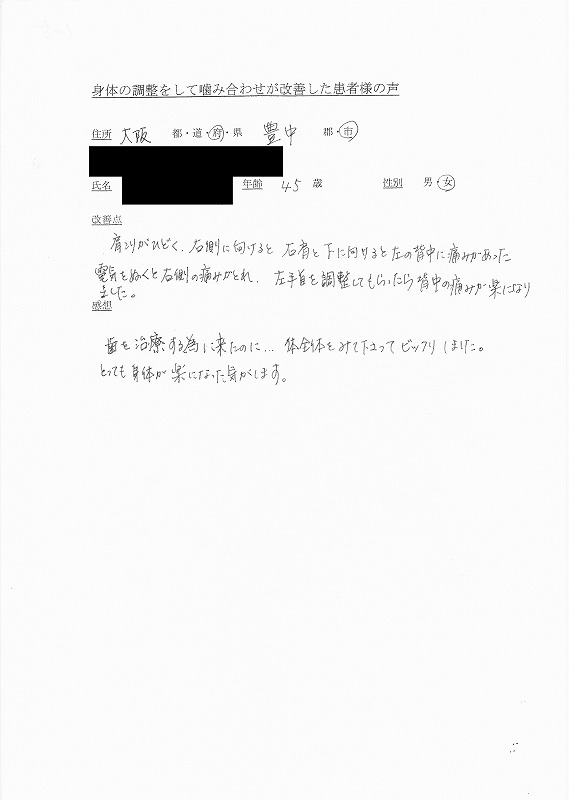 身体の調整をして噛み合わせが改善した患者様の声
住所 大阪 都・道・府・県 豊中 郡・市
氏名 年齢 45 歳 性別 男・女
改善点
肩こりがひどく、右側に向けると 右肩と 下に向けると左の背中に痛みがあった
電気をぬくと右側の痛みがとれ、左手首を調整してもらったら背中の痛みが楽になり
ました。
感想
歯を治療する為に来たのに… 体全体をみて下さって ビックリしました。
とっても身体が楽になった気がします。